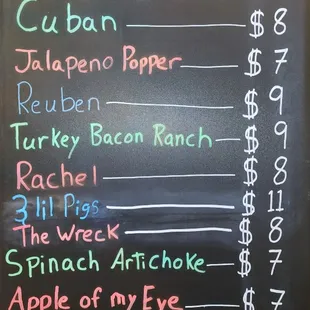 Cuban $8
Jalapeno Popper $7
Reuben $9
Turkey Bacon Ranch $9
Rachel $8
3 lil Pigs $11
The Wreck $8
Spinach Artichoke $7
Apple of my Eye $7